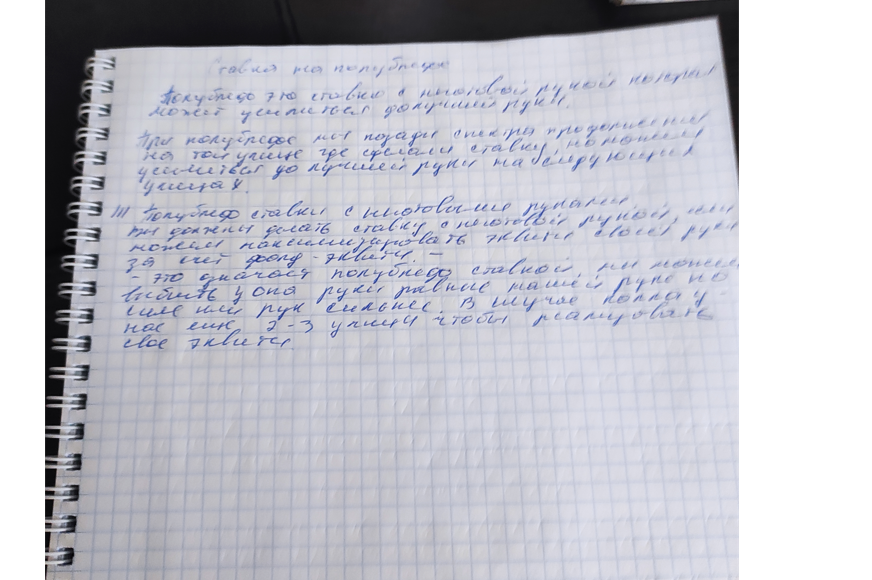 Ставка на полублефе
Полублеф это ставка с неготовой рукой которая
может усилиться до лучшей руки.
При полублефе мы позади спектра продолжения
на той улице где сделали ставку, но можем
усилиться до лучшей руки на следующих
улицах.
!!! Полублеф ставки с неготовыми руками
мы должны делать ставку с неготовой рукой, если
можем максимизировать эквити своей руки
за счет фолд-эквити. –
- это означает полублеф ставкой, мы можем
выбить у опа руки равные нашей руке по
силе или рук сильнее. В случае колла у
нас еще 2-3 улицы чтобы реализовать
свое эквити.